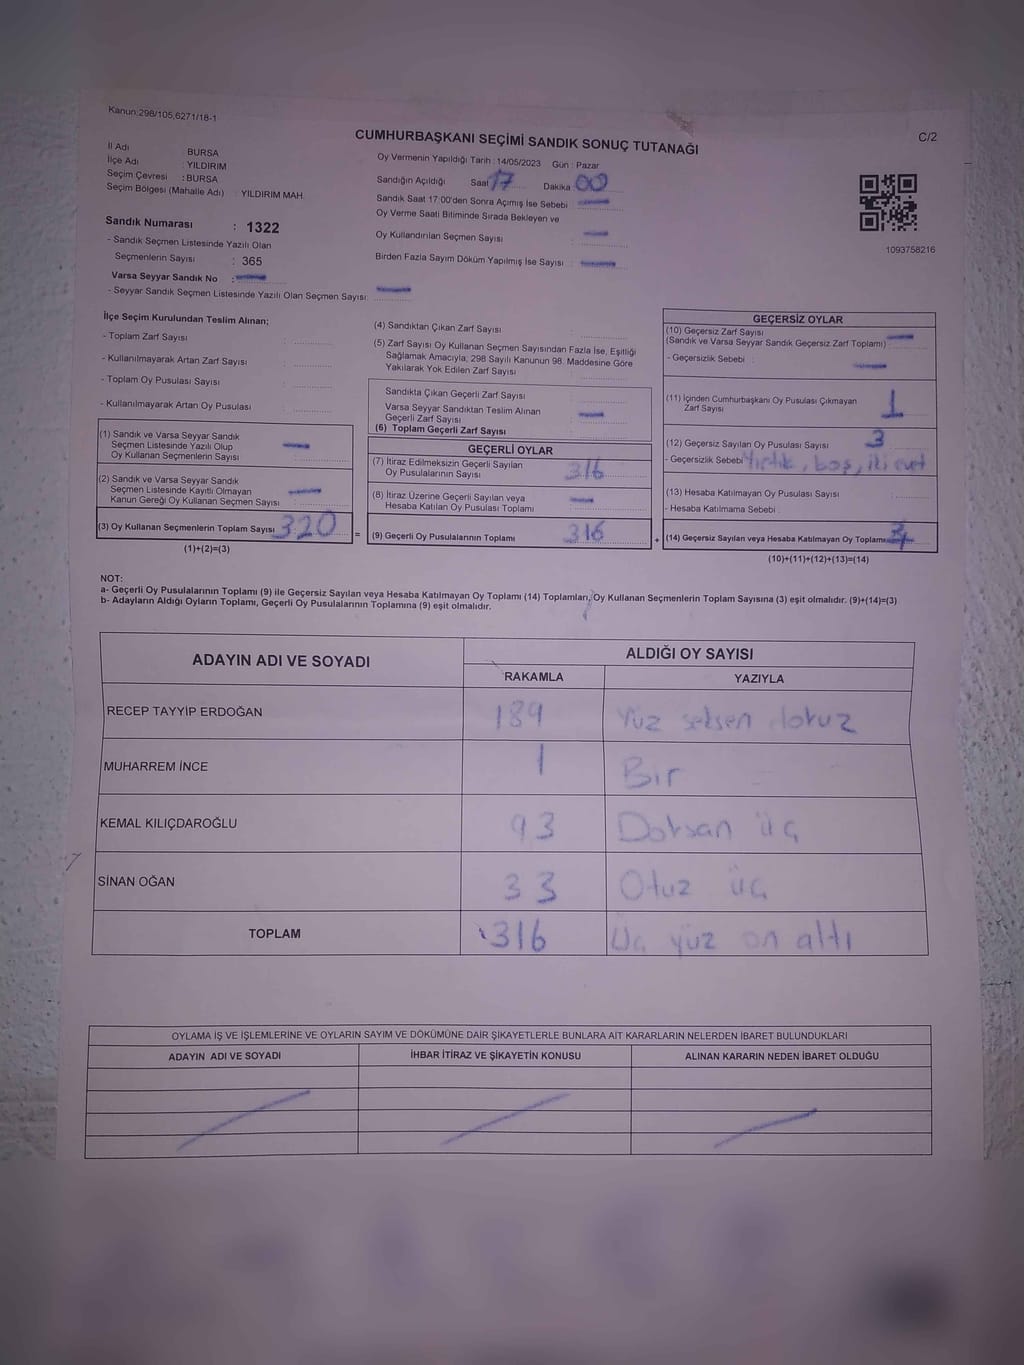 Kanun:298/105,6271/18-1
C/2
CUMHURBAŞKANI SEÇİMİ SANDIK SONUÇ TUTANAĞI
İl Adı BURSA
İlçe Adı : YILDIRIM
Seçim Çevresi : BURSA
Seçim Bölgesi (Mahalle Adı) : YILDIRIM MAH.
Oy Vermenin Yapıldığı Tarih : 14/05/2023 Gün : Pazar
Sandığın Açıldığı Saat 17 Dakika 00
Sandık Saat 17:00'den Sonra Açımış İse Sebebi
Oy Verme Saati Bitiminde Sırada Bekleyen ve
Oy Kullandırılan Seçmen Sayısı :
Birden Fazla Sayım Döküm Yapılmış İse Sayısı :
1093758216
Sandık Numarası : 1322
- Sandık Seçmen Listesinde Yazılı Olan
Seçmenlerin Sayısı : 365
Varsa Seyyar Sandık No :
- Seyyar Sandık Seçmen Listesinde Yazılı Olan Seçmen Sayısı:
İlçe Seçim Kurulundan Teslim Alınan;
- Toplam Zarf Sayısı :
- Kullanılmayarak Artan Zarf Sayısı :
- Toplam Oy Pusulası Sayısı :
- Kullanılmayarak Artan Oy Pusulası :
(1) Sandık ve Varsa Seyyar Sandık
Seçmen Listesinde Yazılı Olup
Oy Kullanan Seçmenlerin Sayısı
(2) Sandık ve Varsa Seyyar Sandık
Seçmen Listesinde Kayıtlı Olmayan
Kanun Gereği Oy Kullanan Seçmen Sayısı
(3) Oy Kullanan Seçmenlerin Toplam Sayısı 320
(1)+(2)=(3)
=
(4) Sandıktan Çıkan Zarf Sayısı :
(5) Zarf Sayısı Oy Kullanan Seçmen Sayısından Fazla İse, Eşitliği
Sağlamak Amacıyla, 298 Sayılı Kanunun 98. Maddesine Göre
Yakılarak Yok Edilen Zarf Sayısı
Sandıkta Çıkan Geçerli Zarf Sayısı
Varsa Seyyar Sandıktan Teslim Alınan
Geçerli Zarf Sayısı
(6) Toplam Geçerli Zarf Sayısı
GEÇERLİ OYLAR
(7) İtiraz Edilmeksizin Geçerli Sayılan
Oy Pusulalarının Sayısı 316
(8) İtiraz Üzerine Geçerli Sayılan veya
Hesaba Katılan Oy Pusulası Toplamı
(9) Geçerli Oy Pusulalarının Toplamı 316
+
GEÇERSİZ OYLAR
(10) Geçersiz Zarf Sayısı
(Sandık ve Varsa Seyyar Sandık Geçersiz Zarf Toplamı)
- Geçersizlik Sebebi :
(11) İçinden Cumhurbaşkanı Oy Pusulası Çıkmayan
Zarf Sayısı 1
(12) Geçersiz Sayılan Oy Pusulası Sayısı 3
- Geçersizlik Sebebi Yırtık, boş, iki evet
(13) Hesaba Katılmayan Oy Pusulası Sayısı
- Hesaba Katılmama Sebebi :
(14) Geçersiz Sayılan veya Hesaba Katılmayan Oy Toplamı
(10)+(11)+(12)+(13)=(14)
NOT:
a- Geçerli Oy Pusulalarının Toplamı (9) ile Geçersiz Sayılan veya Hesaba Katılmayan Oy Toplamı (14) Toplamları, Oy Kullanan Seçmenlerin Toplam Sayısına (3) eşit olmalıdır. (9)+(14)=(3)
b- Adayların Aldığı Oyların Toplamı, Geçerli Oy Pusulalarının Toplamına (9) eşit olmalıdır.
ADAYIN ADI VE SOYADI ALDIĞI OY SAYISI
RAKAMLA YAZIYLA
RECEP TAYYİP ERDOĞAN 189 Yüz seksen dokuz
MUHARREM İNCE 1 Bir
KEMAL KILIÇDAROĞLU 93 Doksan üç
SİNAN OĞAN 33 Otuz üç
TOPLAM 316 Üç yüz on altı
OYLAMA İŞ VE İŞLEMLERİNE VE OYLARIN SAYIM VE DÖKÜMÜNE DAİR ŞİKAYETLERLE BUNLARA AİT KARARLARIN NELERDEN İBARET BULUNDUKLARI
ADAYIN ADI VE SOYADI İHBAR İTİRAZ VE ŞİKAYETİN KONUSU ALINAN KARARIN NEDEN İBARET OLDUĞU